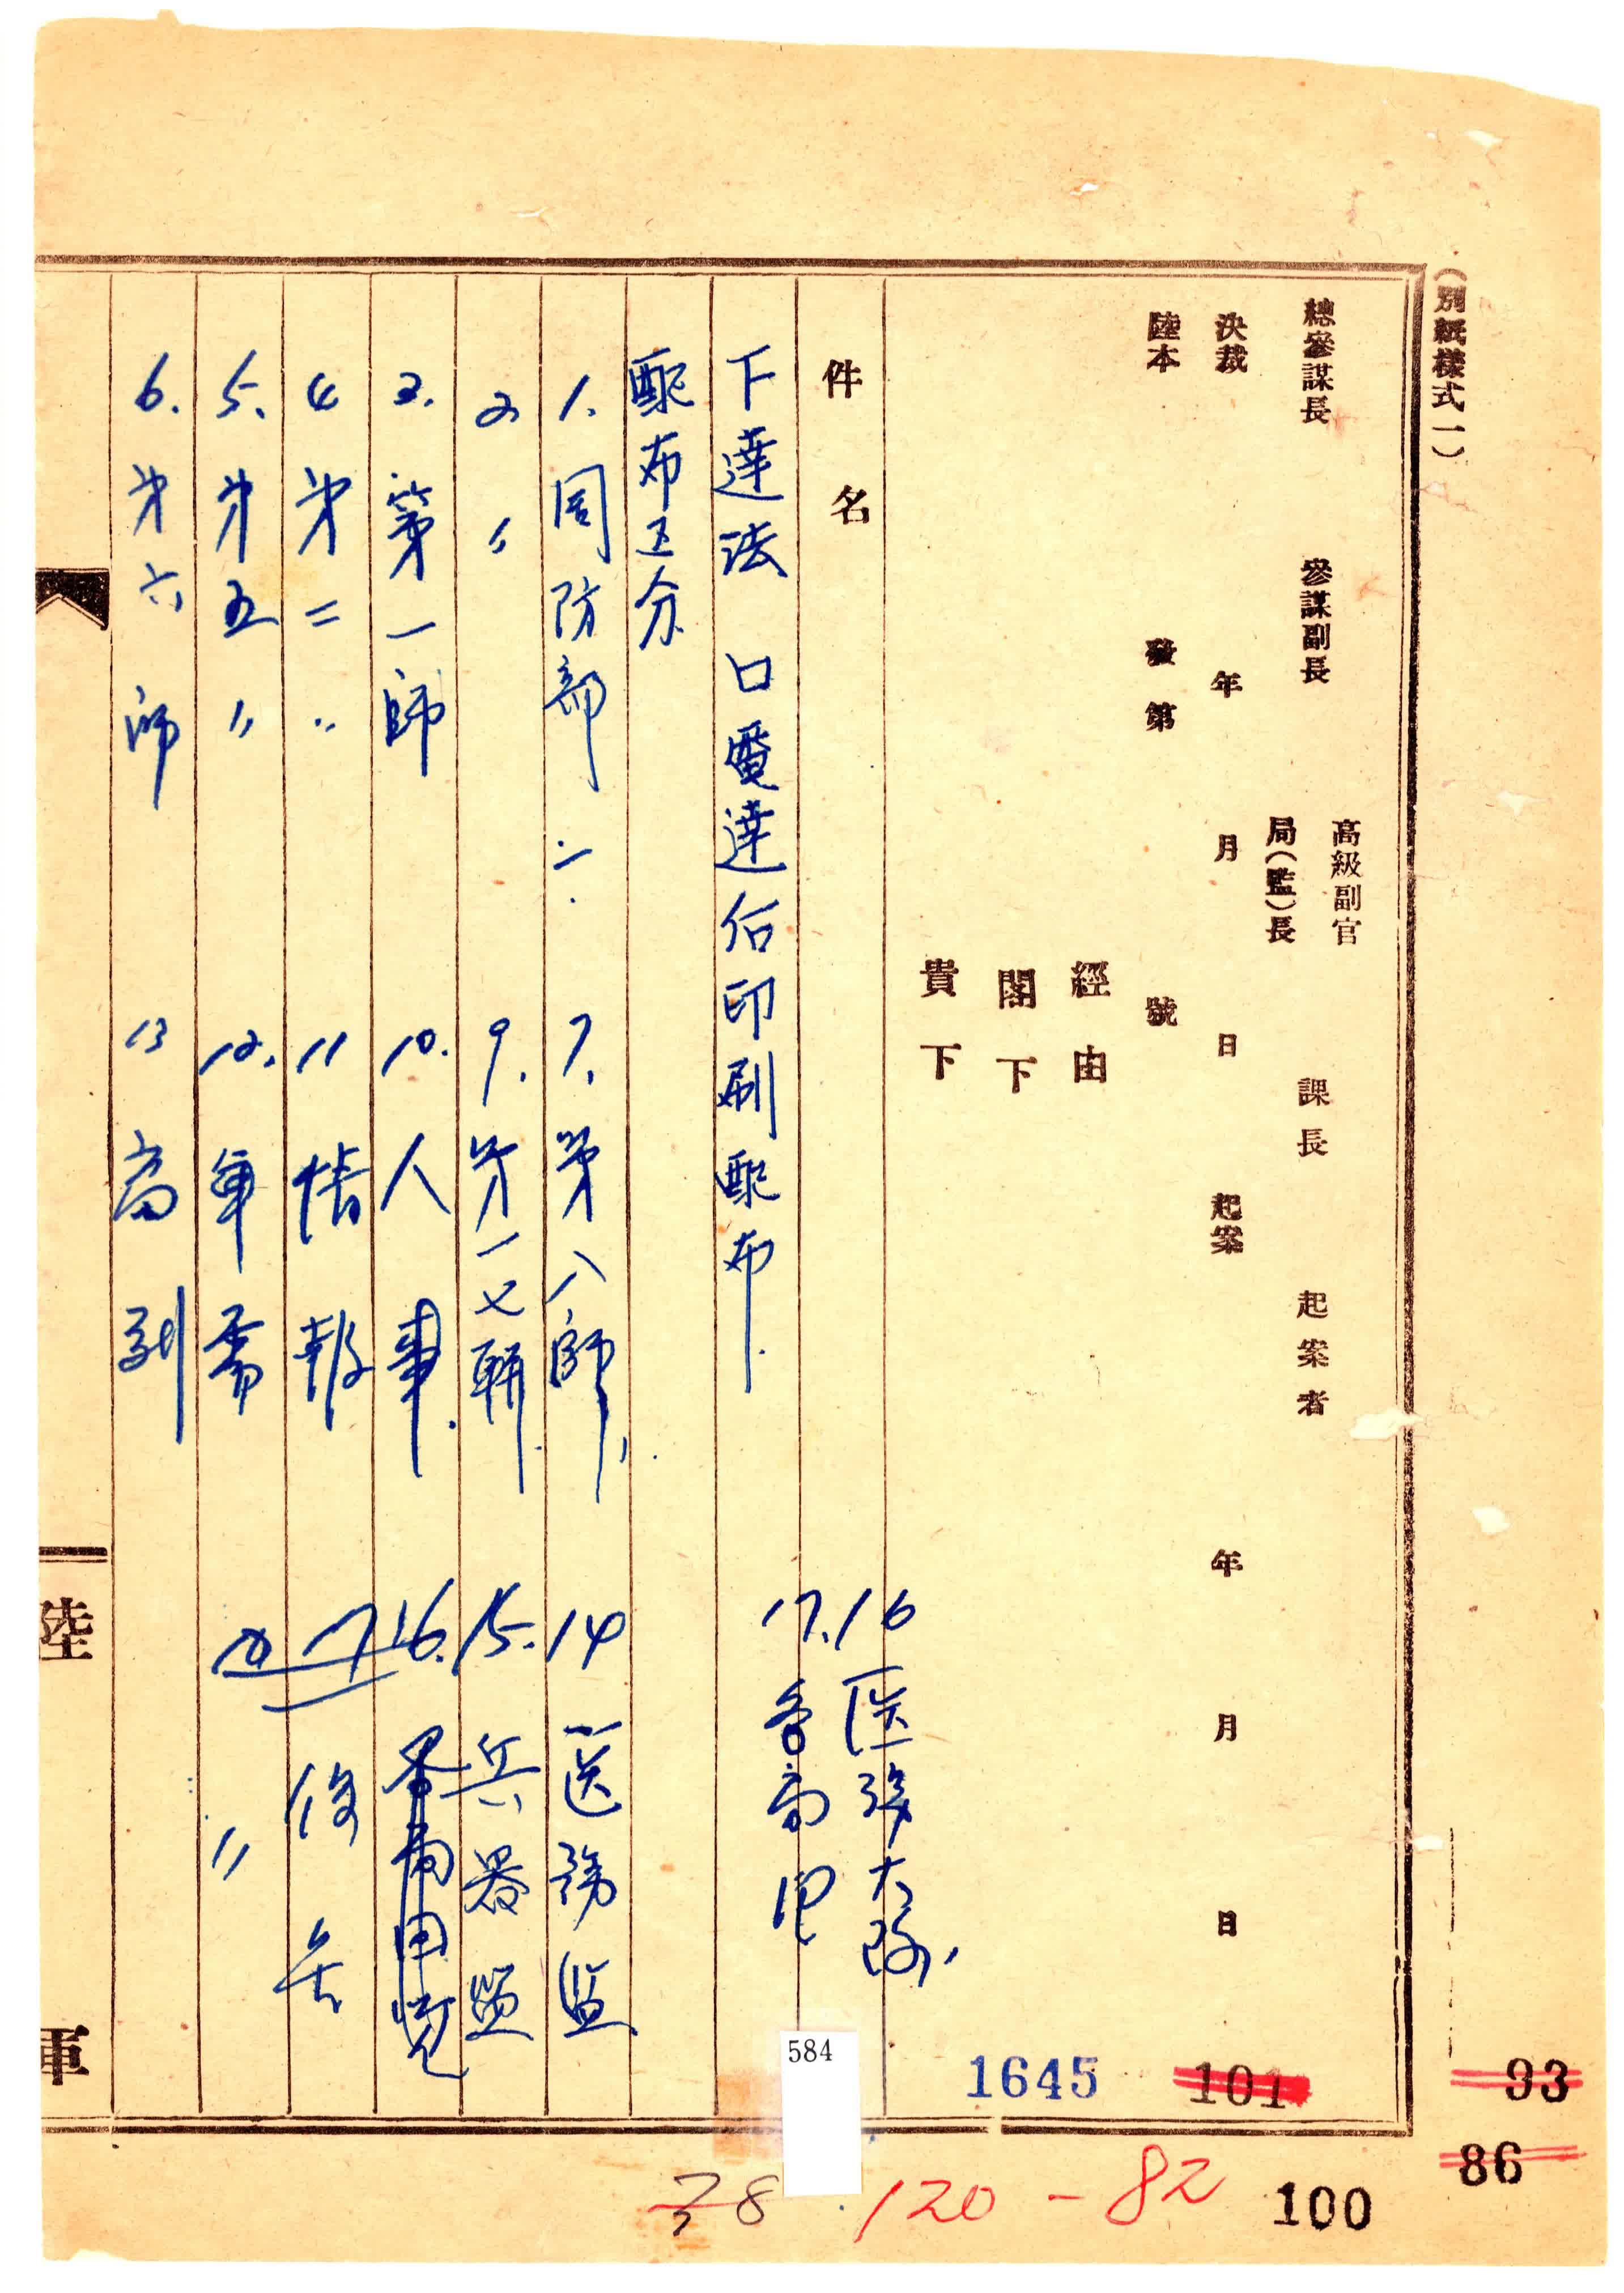 (別紙樣式一)
總參謀長
參謀副長
高級副官
局(監)長
課長
起案者
決裁
年
月
日
起案
年
月
日
陸本
發第
號
經由
閣下
貴下
件名
下達法 口電達后印刷配布.
配布区分
1. 国防部 一.
2 〃
3. 第一師
4 第二 〃
5. 第五 〃
6. 第六師
7. 第八師,
9. 第一七聯.
10. 人事.
11 情報
12. 軍需
13 高副
14 医務監
15. 兵器監
16.
17
〃
16 医務大隊,
17.
陸
軍
584
1645
101
93
86
100
78
120 - 82